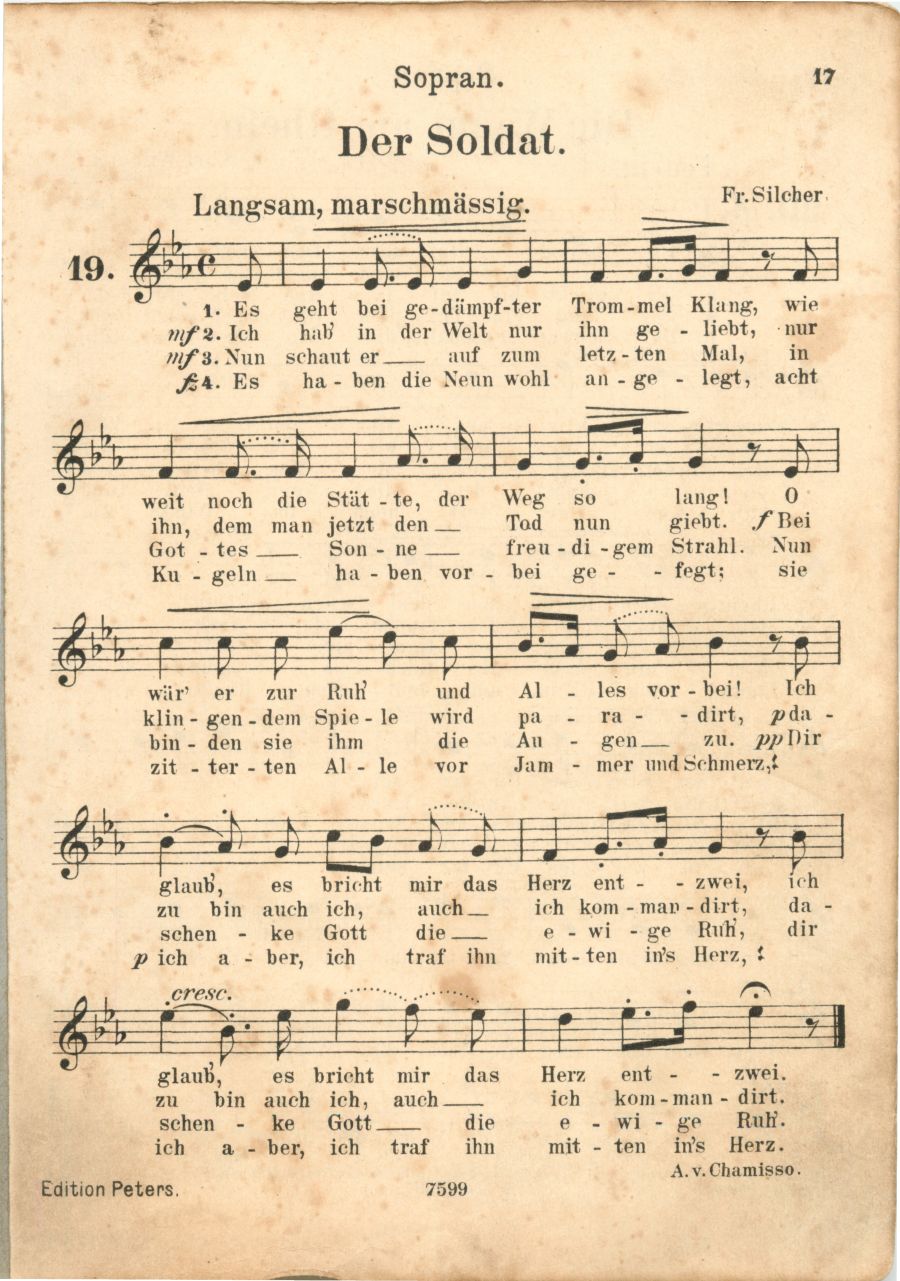 Sopran.
17
Der Soldat.
Langsam, marschmässig.
Fr. Silcher.
19.
1. Es geht bei ge-dämpf-ter Trom-mel Klang, wie
mf 2. Ich hab' in der Welt nur ihn ge - liebt, nur
mf 3. Nun schaut er auf zum letz-ten Mal, in
fz 4. Es ha - ben die Neun wohl an - ge - legt, acht
weit noch die Stät - te, der Weg so lang! O
ihn, dem man jetzt den Tod nun giebt. f Bei
Got - tes Son - ne freu - di - gem Strahl. Nun
Ku - geln ha - ben vor - bei ge - - fegt; sie
wär' er zur Ruh' und Al - les vor - bei! Ich
klin - gen - dem Spie - le wird pa - ra - - dirt, p da -
bin - den sie ihm die Au - gen zu. pp Dir
zit - ter - ten Al - le vor Jam - mer und Schmerz,
glaub', es bricht mir das Herz ent - - zwei, ich
zu bin auch ich, auch ich kom - man - dirt, da -
schen - ke Gott die e - wi - ge Ruh', dir
p ich a - ber, ich traf ihn mit - ten in's Herz,
cresc.
glaub', es bricht mir das Herz ent - - zwei.
zu bin auch ich, auch ich kom - man - dirt.
schen - ke Gott die e - wi - ge Ruh'.
ich a - ber, ich traf ihn mit - ten in's Herz.
A. v. Chamisso.
Edition Peters.
7599